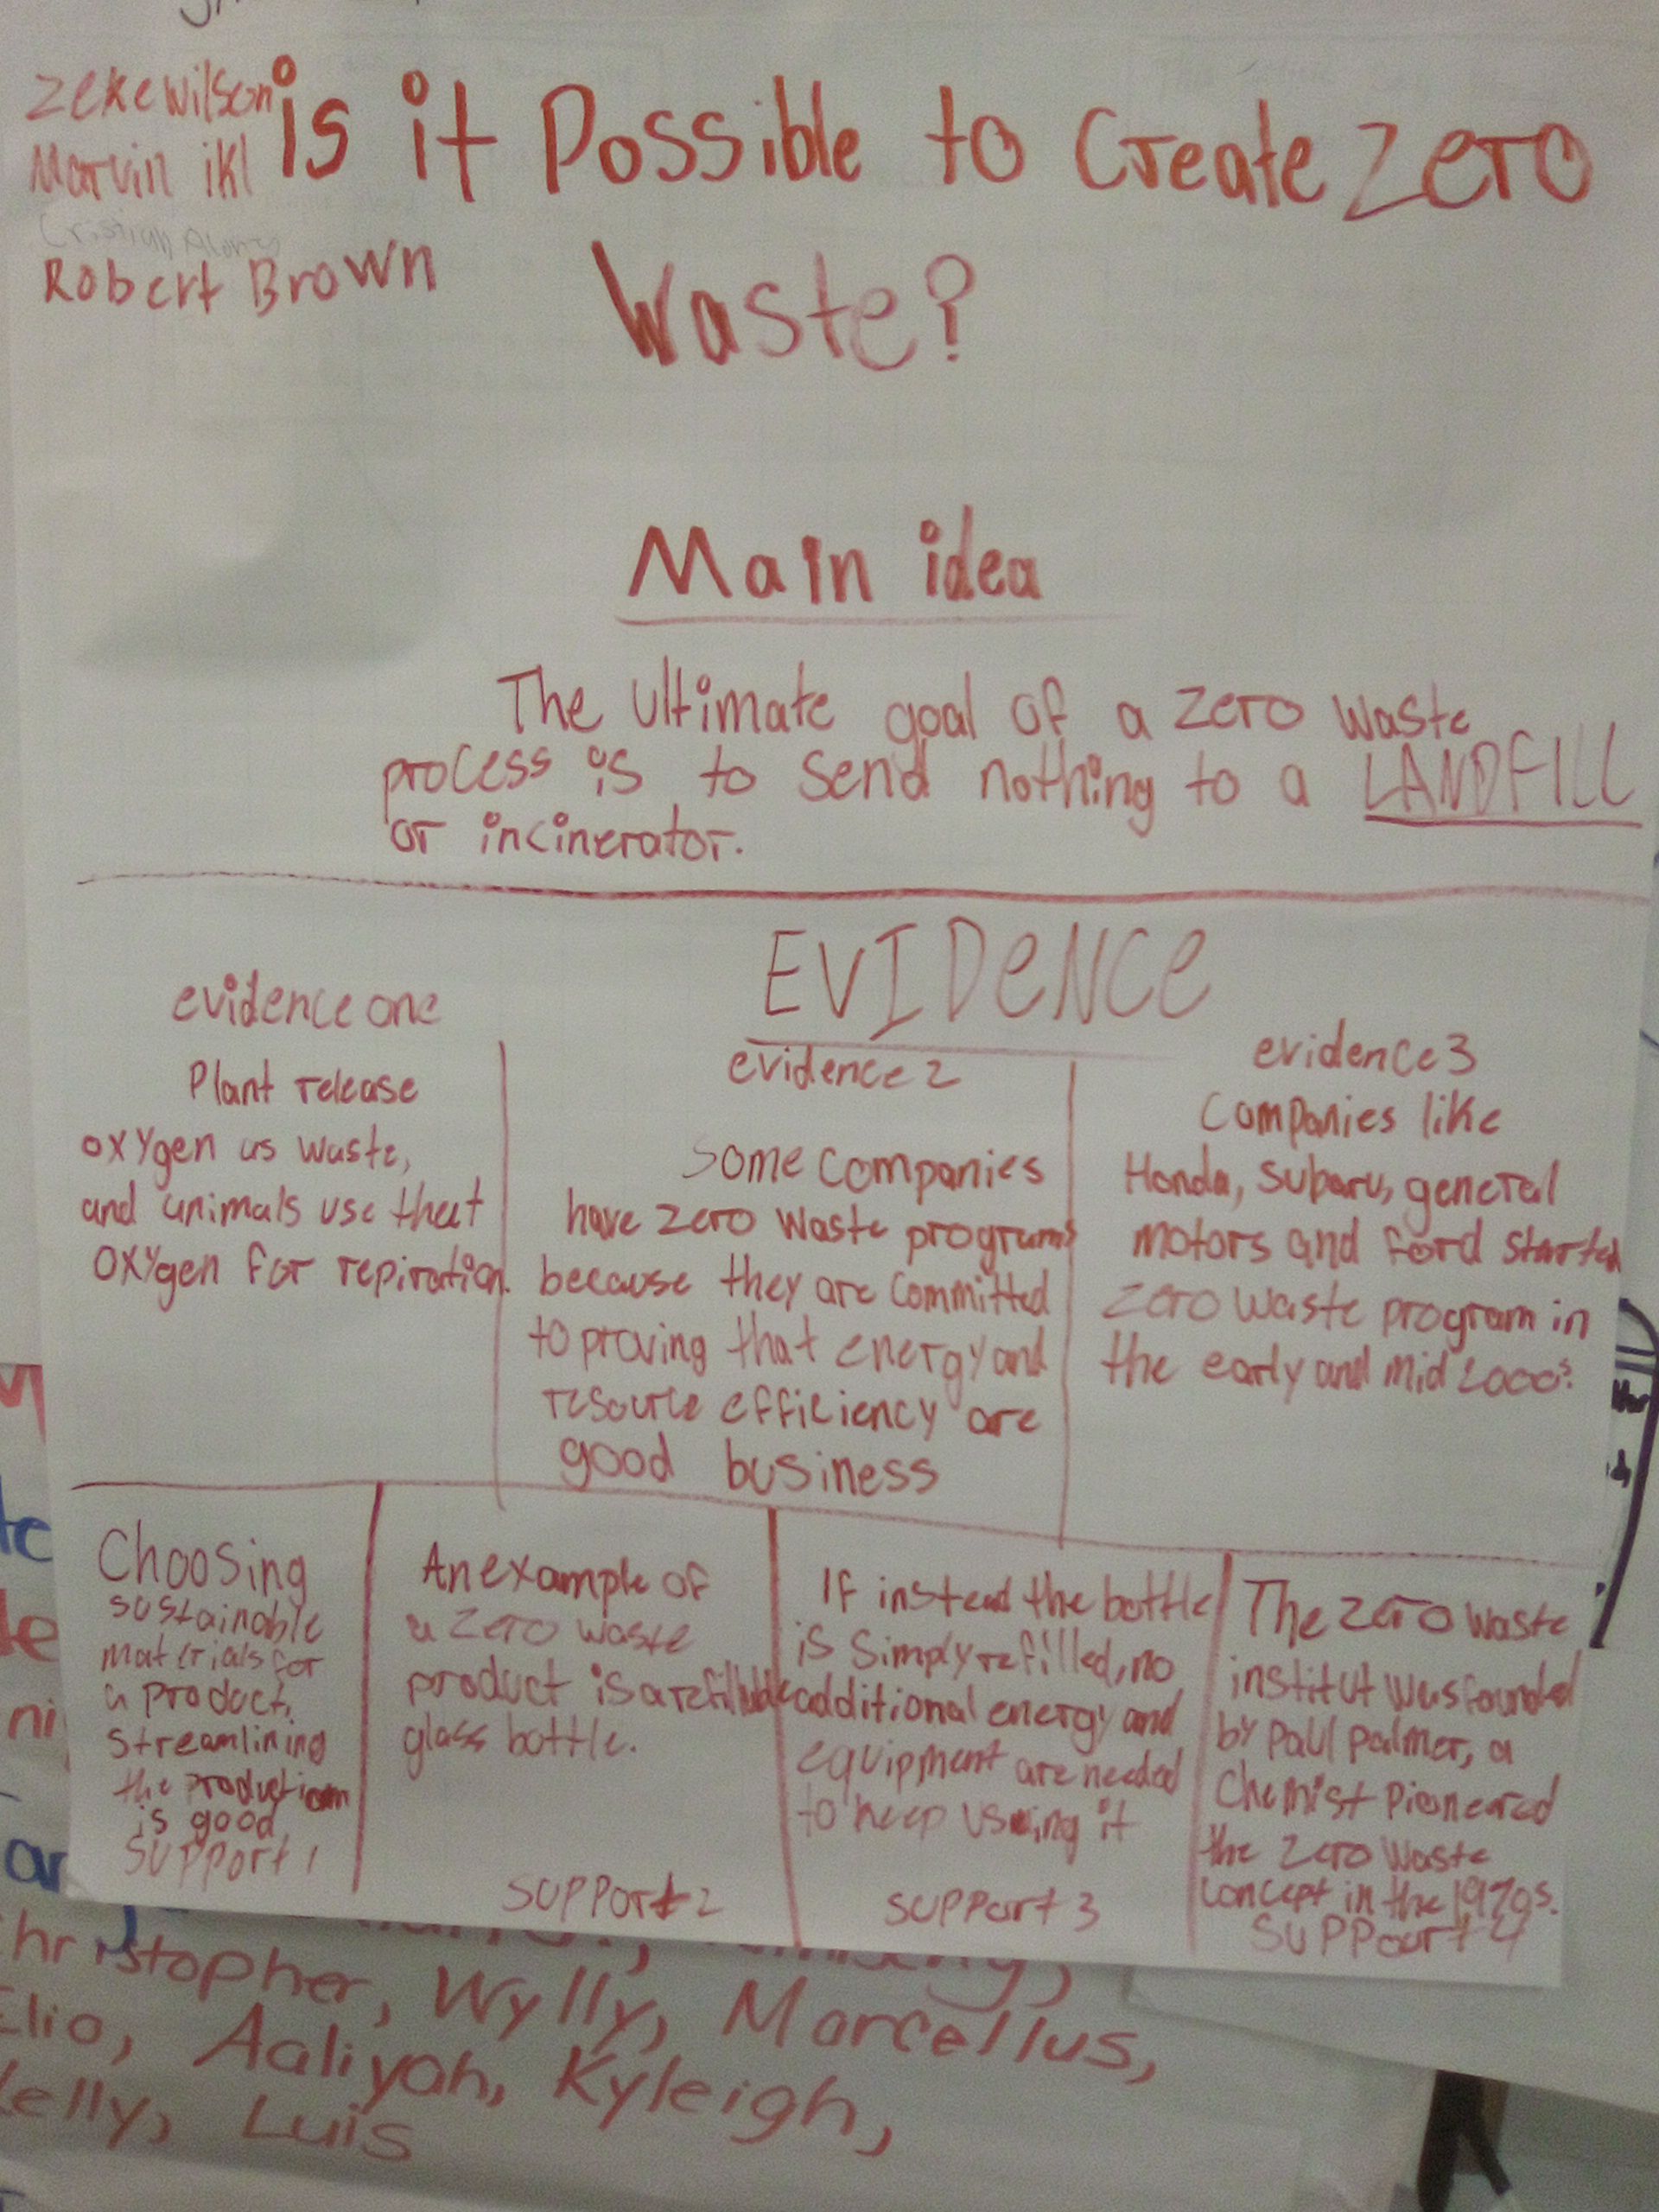 Zeke Wilson
Marvin ikl
Cristian
Robert Brown
is it Possible to Create Zero
Waste?
Main idea
The ultimate goal of a zero waste
process is to send nothing to a LANDFILL
or incinerator.
EVIDeNCe
evidence one
Plant release
oxygen as waste,
and animals use that
oxygen for repiration.
evidence 2
Some companies
have zero waste programs
because they are committed
to proving that energy and
resource efficiency are
good business
evidence 3
Companies like
Honda, subaru, general
motors and ford started
zero waste program in
the early and mid 2000s.
Choosing
sustainable
materials for
a product,
streamlining
the production
is good
support 1
An example of
a zero waste
product is a refillable
glass bottle.
support 2
If instead the bottle
is simply refilled, no
additional energy and
equipment are needed
to keep using it
support 3
The zero waste
institut was founded
by paul palmer, a
chemist pioneered
the zero waste
concept in the 1970s.
support 4
hristopher, Wylly, Marcellus,
Elio, Aaliyah, Kyleigh,
elly, Luis